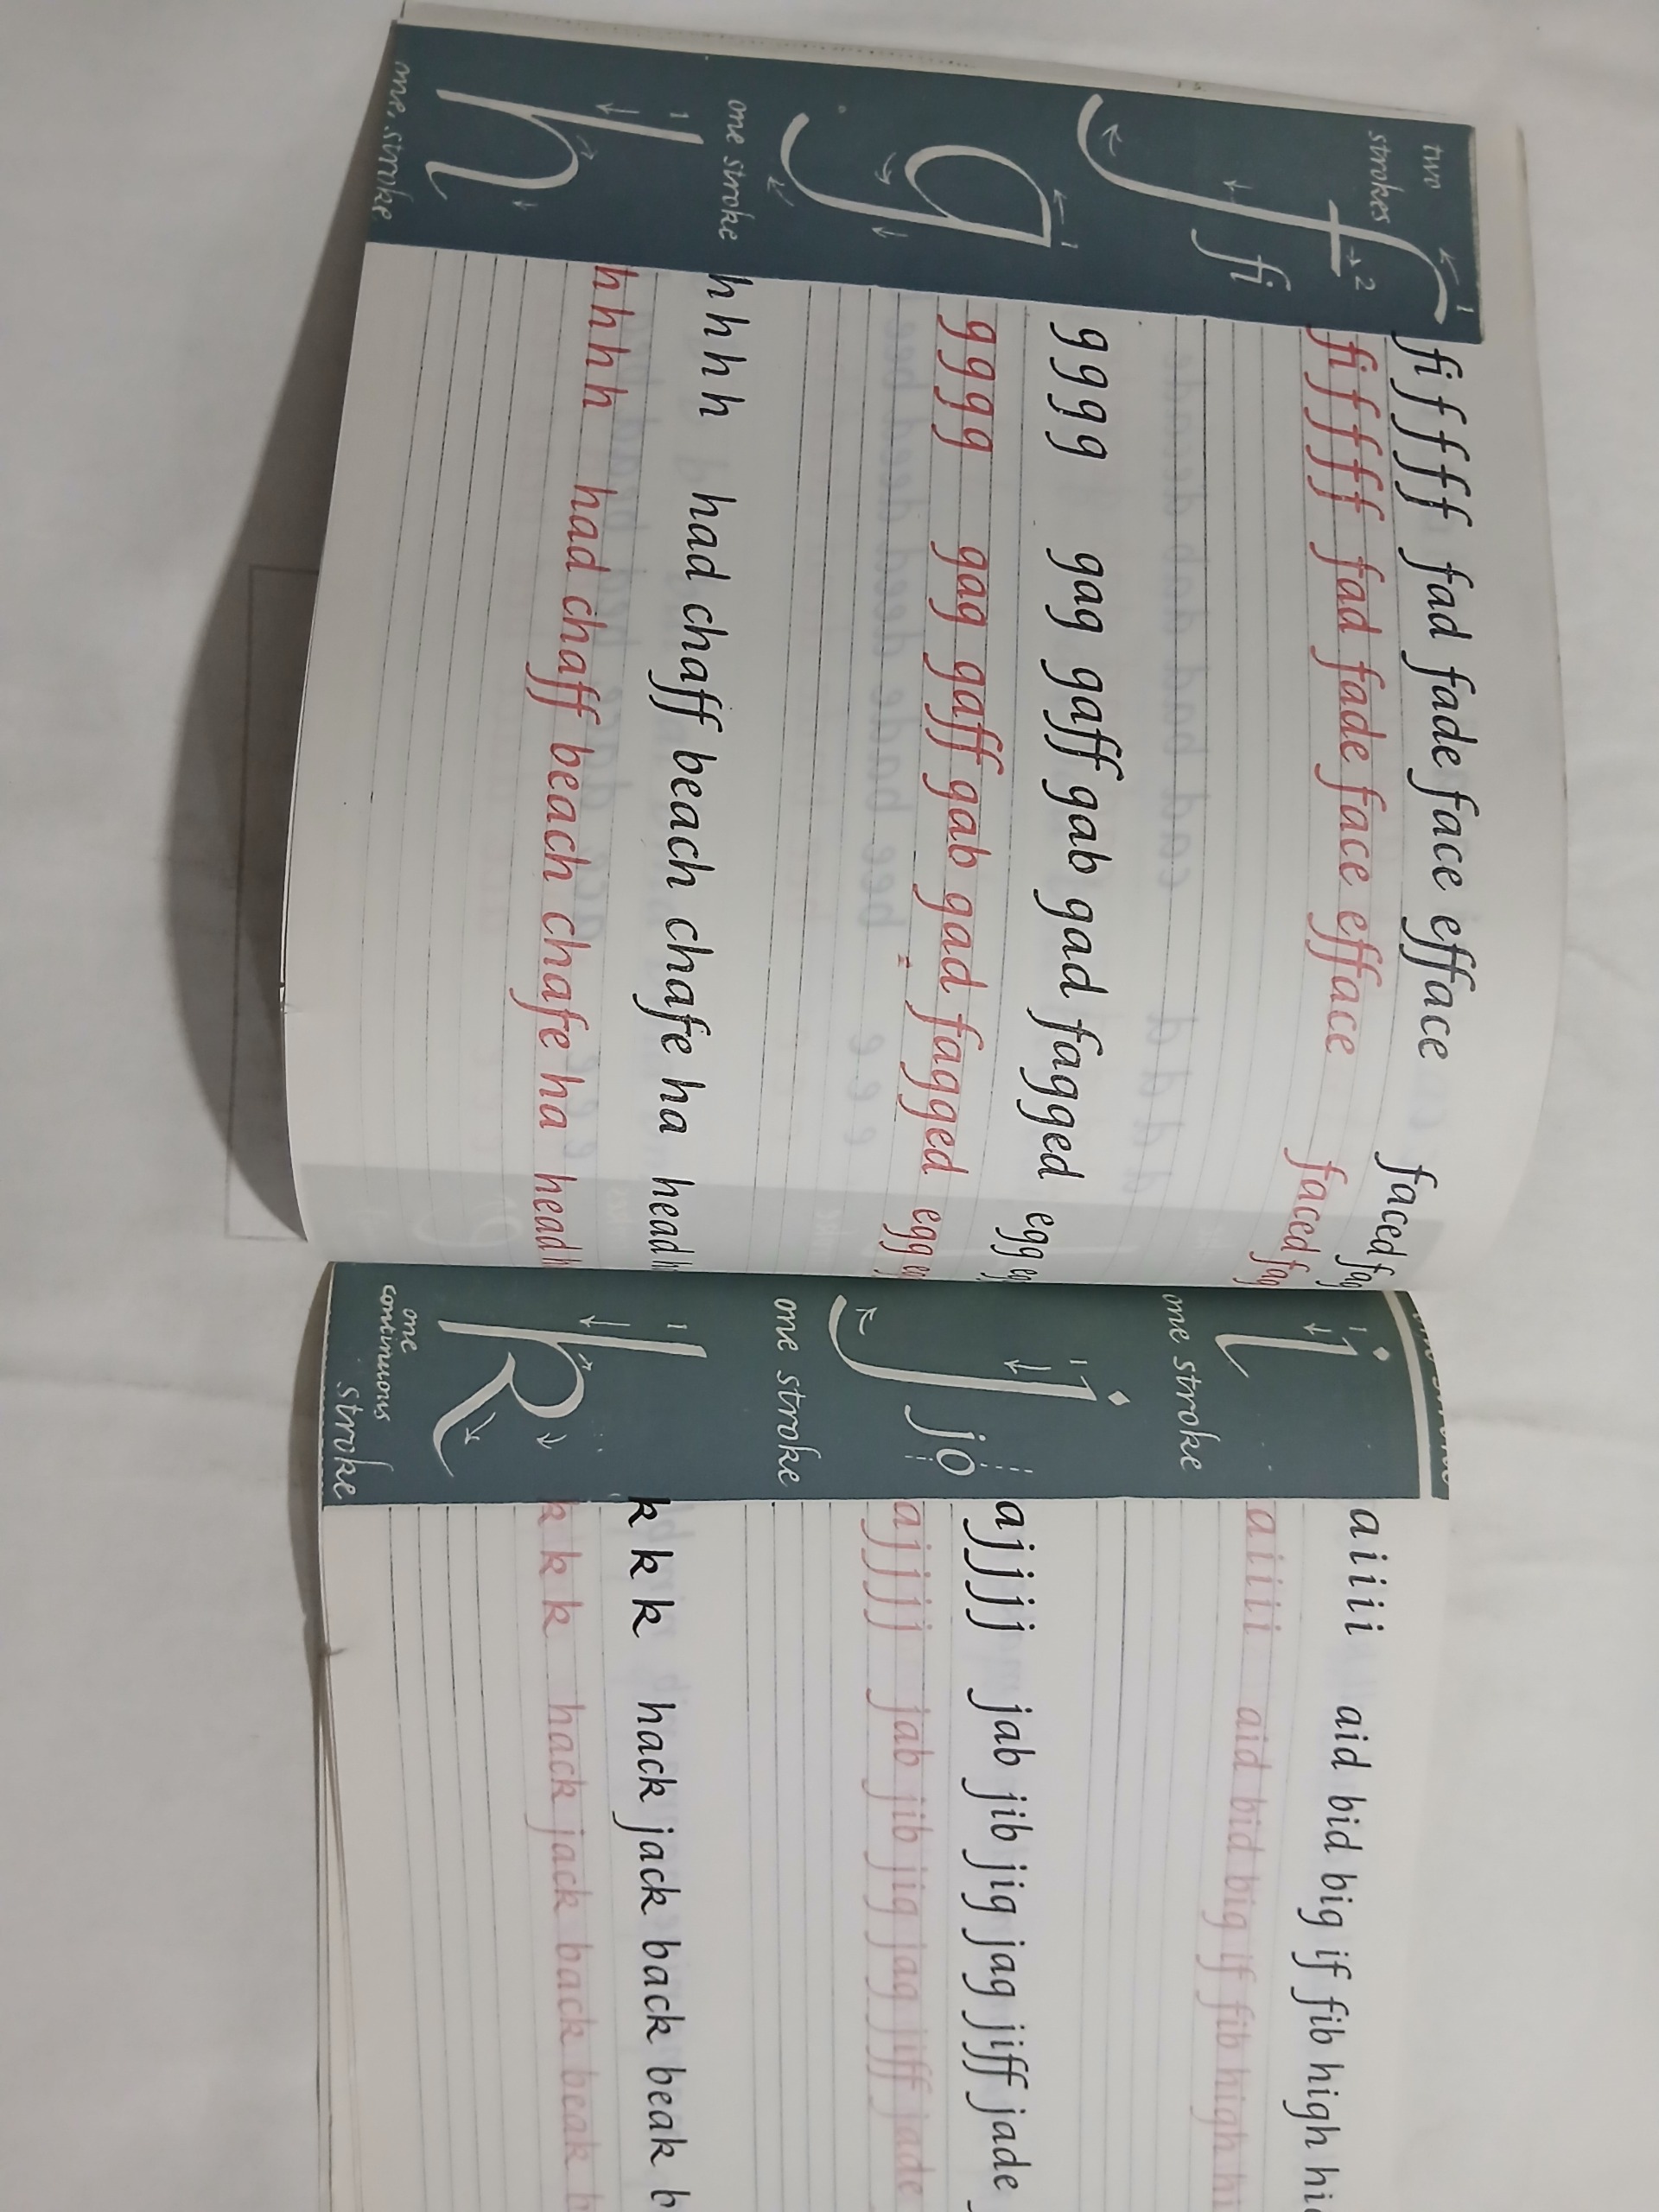 two
strokes
1
2
fi
fi f f f f fad fade face efface faced fag
fi f f f f fad fade face efface faced fag
1
one stroke
g g g g gag gaff gab gad fagged egg
g g g g gag gaff gab gad fagged egg
1
one stroke
h h h h had chaff beach chafe ha head
h h h h had chaff beach chafe ha head
1
one stroke
a i i i i aid bid big if fib high
a i i i i aid bid big if fib high
1
jo
one stroke
a j j j j jab jib jig jag jiff jade
a j j j j jab jib jig jag jiff jade
1
one
continuous
stroke
k k k hack jack back beak
k k k hack jack back beak